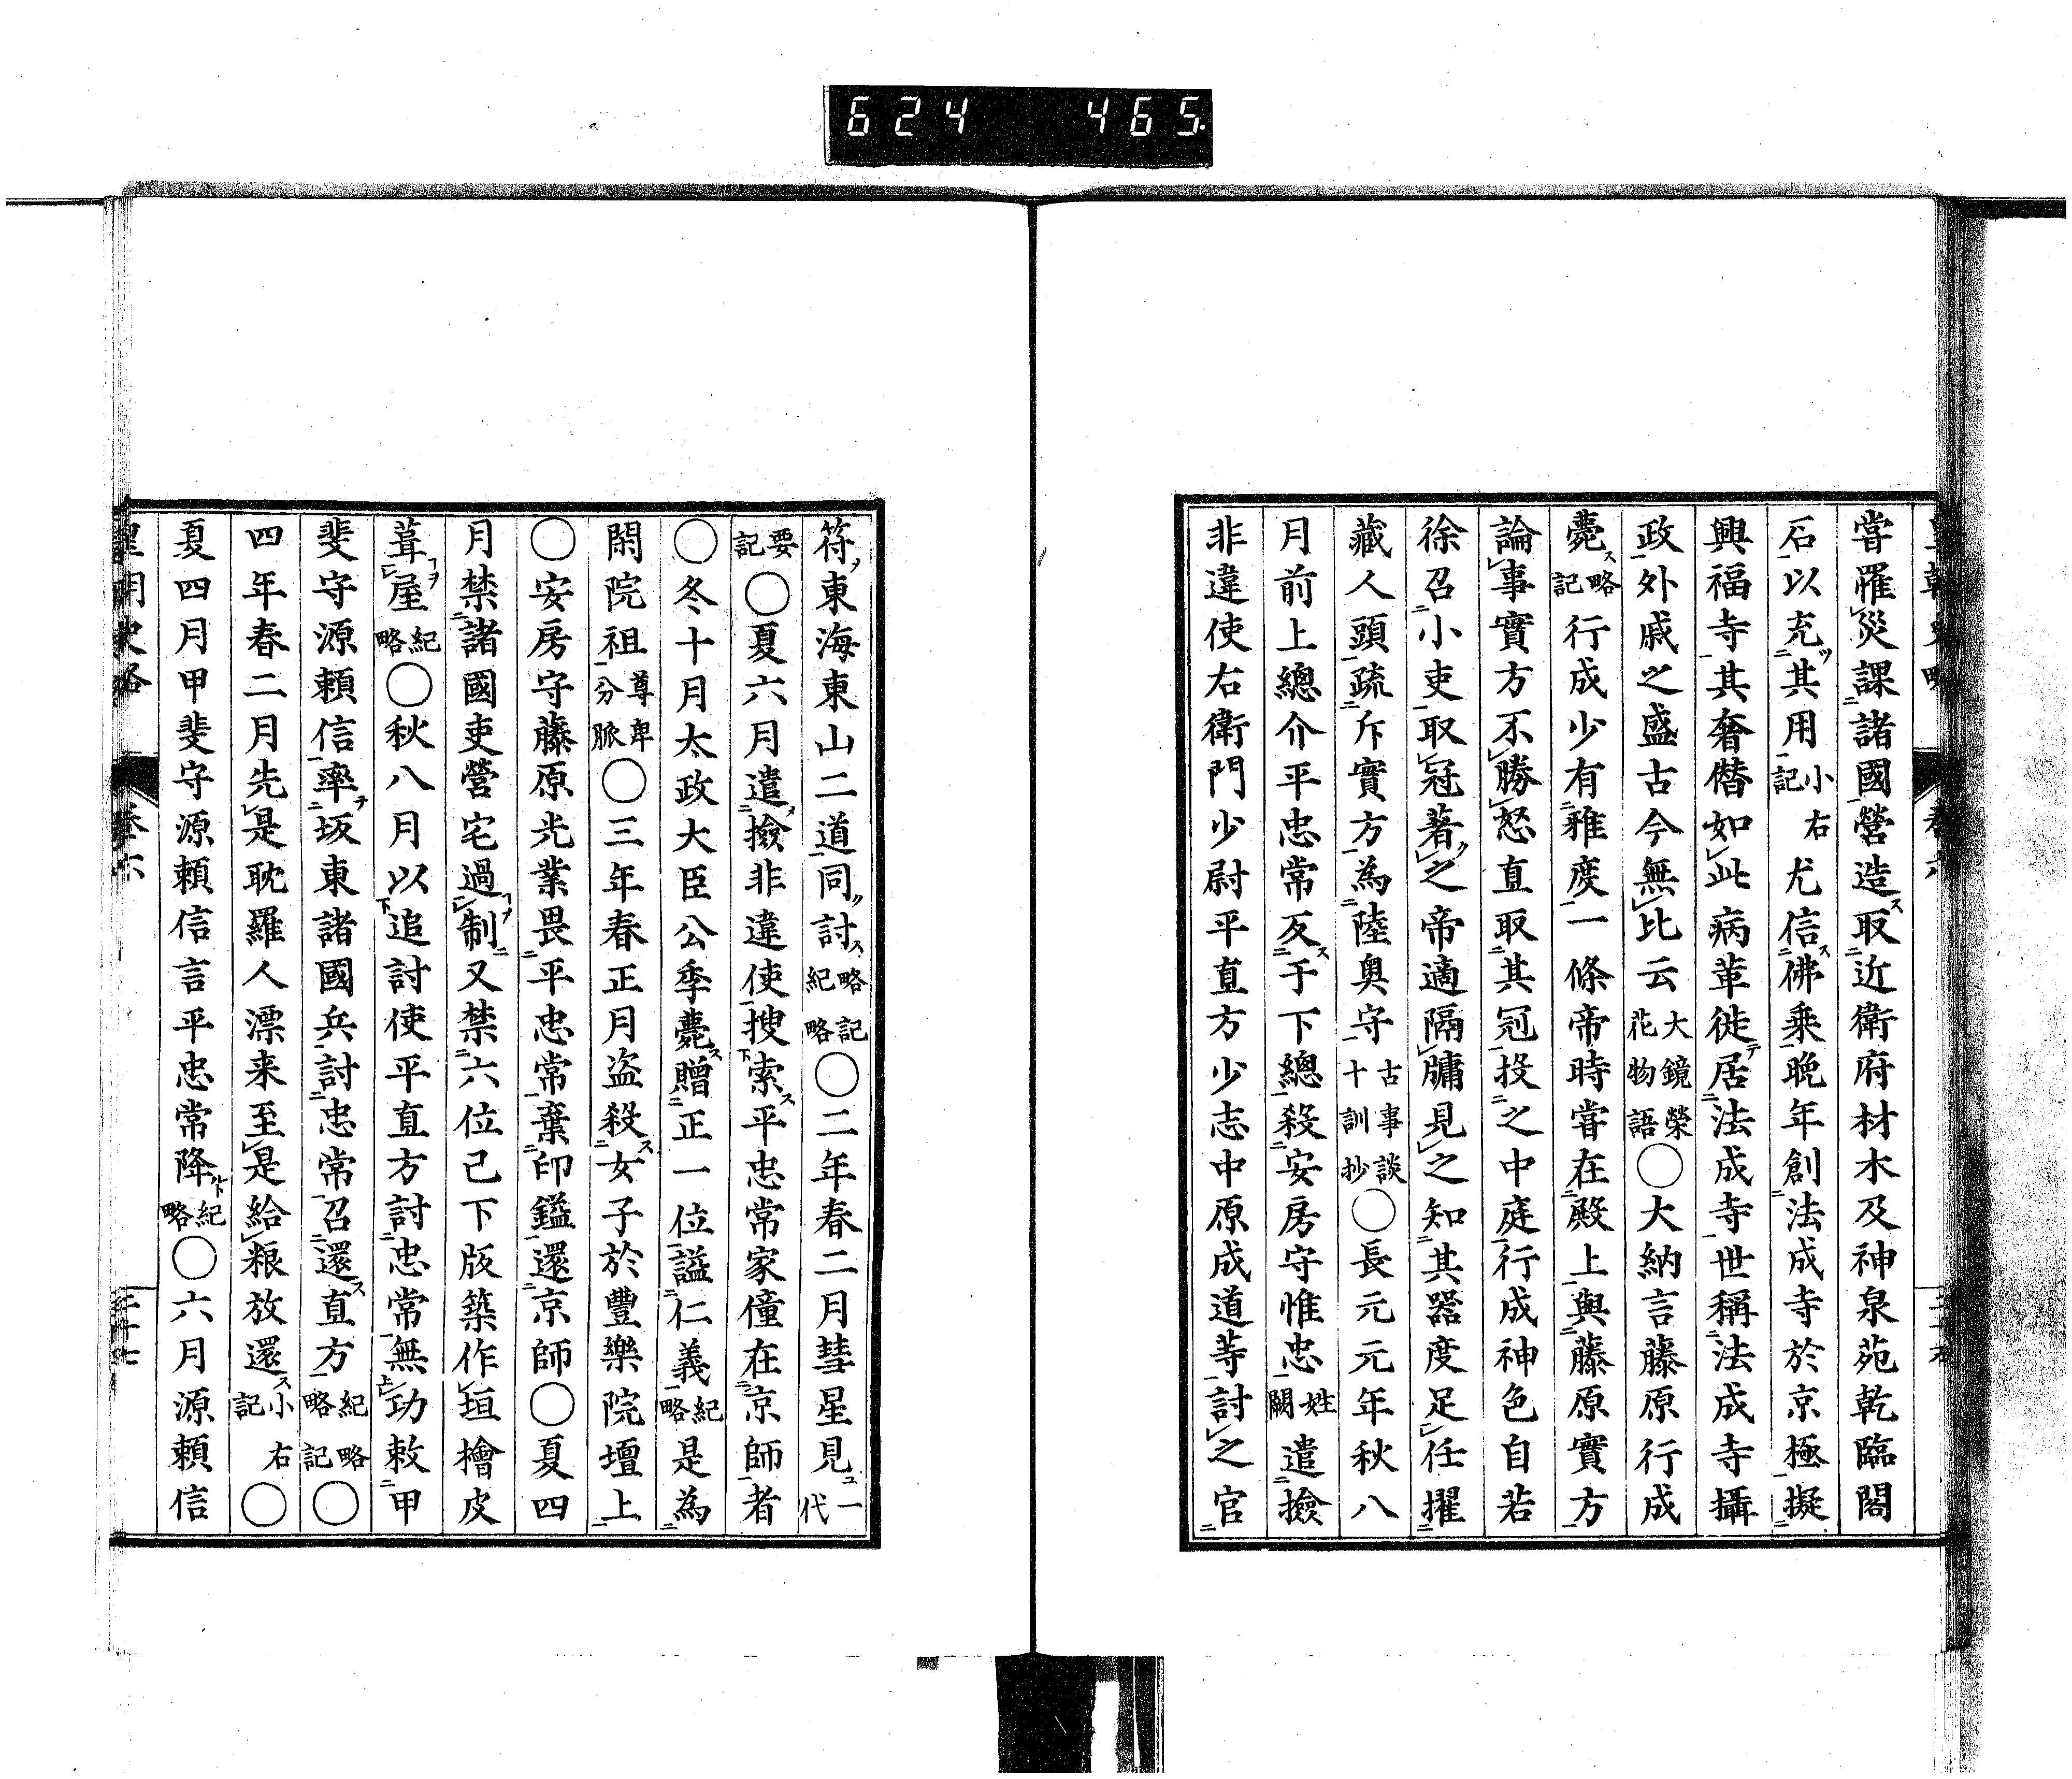 624 465
嘗罹災課諸國營造取近衛府材木及神泉苑乾臨閣
石以充其用小右記尤信佛乘晩年創法成寺於京極擬
興福寺其奢僭如此病革徙居法成寺世稱法成寺攝
政外戚之盛古今無比云大鏡榮花物語○大納言藤原行成
薨略記行成少有雅度一條帝時嘗在殿上與藤原實方
論事實方不勝怒直取其冠投之中庭行成神色自若
徐召小吏取冠著之帝適隔牖見之知其器度足任擢
藏人頭疏斥實方為陸奥守古事談十訓抄○長元元年秋八
月前上總介平忠常反于下總殺安房守惟忠姓闕遣撿
非違使右衛門少尉平直方少志中原成道等討之官
符東海東山二道同討略記紀略○二年春二月彗星見一代
要記○夏六月遣撿非違使搜索平忠常家僮在京師者
○冬十月太政大臣公季薨贈正一位謚仁義紀略是為
閑院祖尊卑分脈○三年春正月盜殺女子於豐樂院壇上
○安房守藤原光業畏平忠常棄印鎰還京師○夏四
月禁諸國吏營宅過制又禁六位己下版築作垣檜皮
葺屋紀略○秋八月以追討使平直方討忠常無功敕甲
斐守源賴信率坂東諸國兵討忠常召還直方紀略略記○
四年春二月先是耽羅人漂来至是給粮放還小右記○
夏四月甲斐守源賴信言平忠常降紀略○六月源賴信